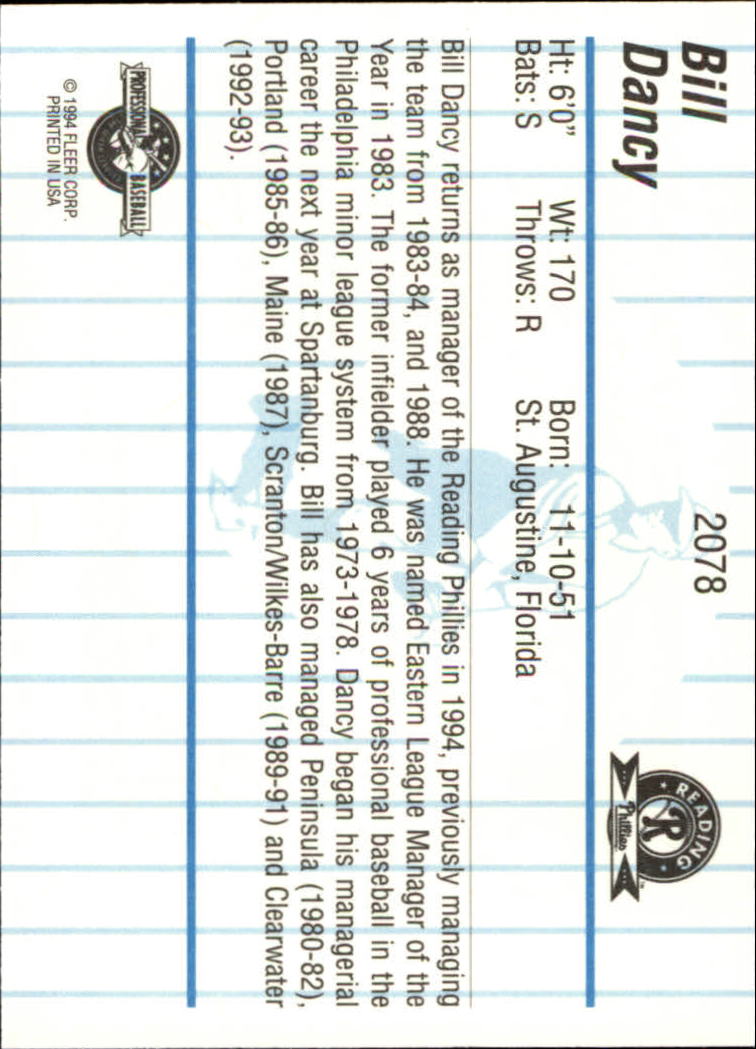 Bill
Dancy
2078
READING
R
Phillies
™
Ht: 6'0" Wt: 170 Born: 11-10-51
Bats: S Throws: R St. Augustine, Florida
Bill Dancy returns as manager of the Reading Phillies in 1994, previously managing
the team from 1983-84, and 1988. He was named Eastern League Manager of the
Year in 1983. The former infielder played 6 years of professional baseball in the
Philadelphia minor league system from 1973-1978. Dancy began his managerial
career the next year at Spartanburg. Bill has also managed Peninsula (1980-82),
Portland (1985-86), Maine (1987), Scranton/Wilkes-Barre (1989-91) and Clearwater
(1992-93).
PROFESSIONAL BASEBALL
© 1994 FLEER CORP.
PRINTED IN USA